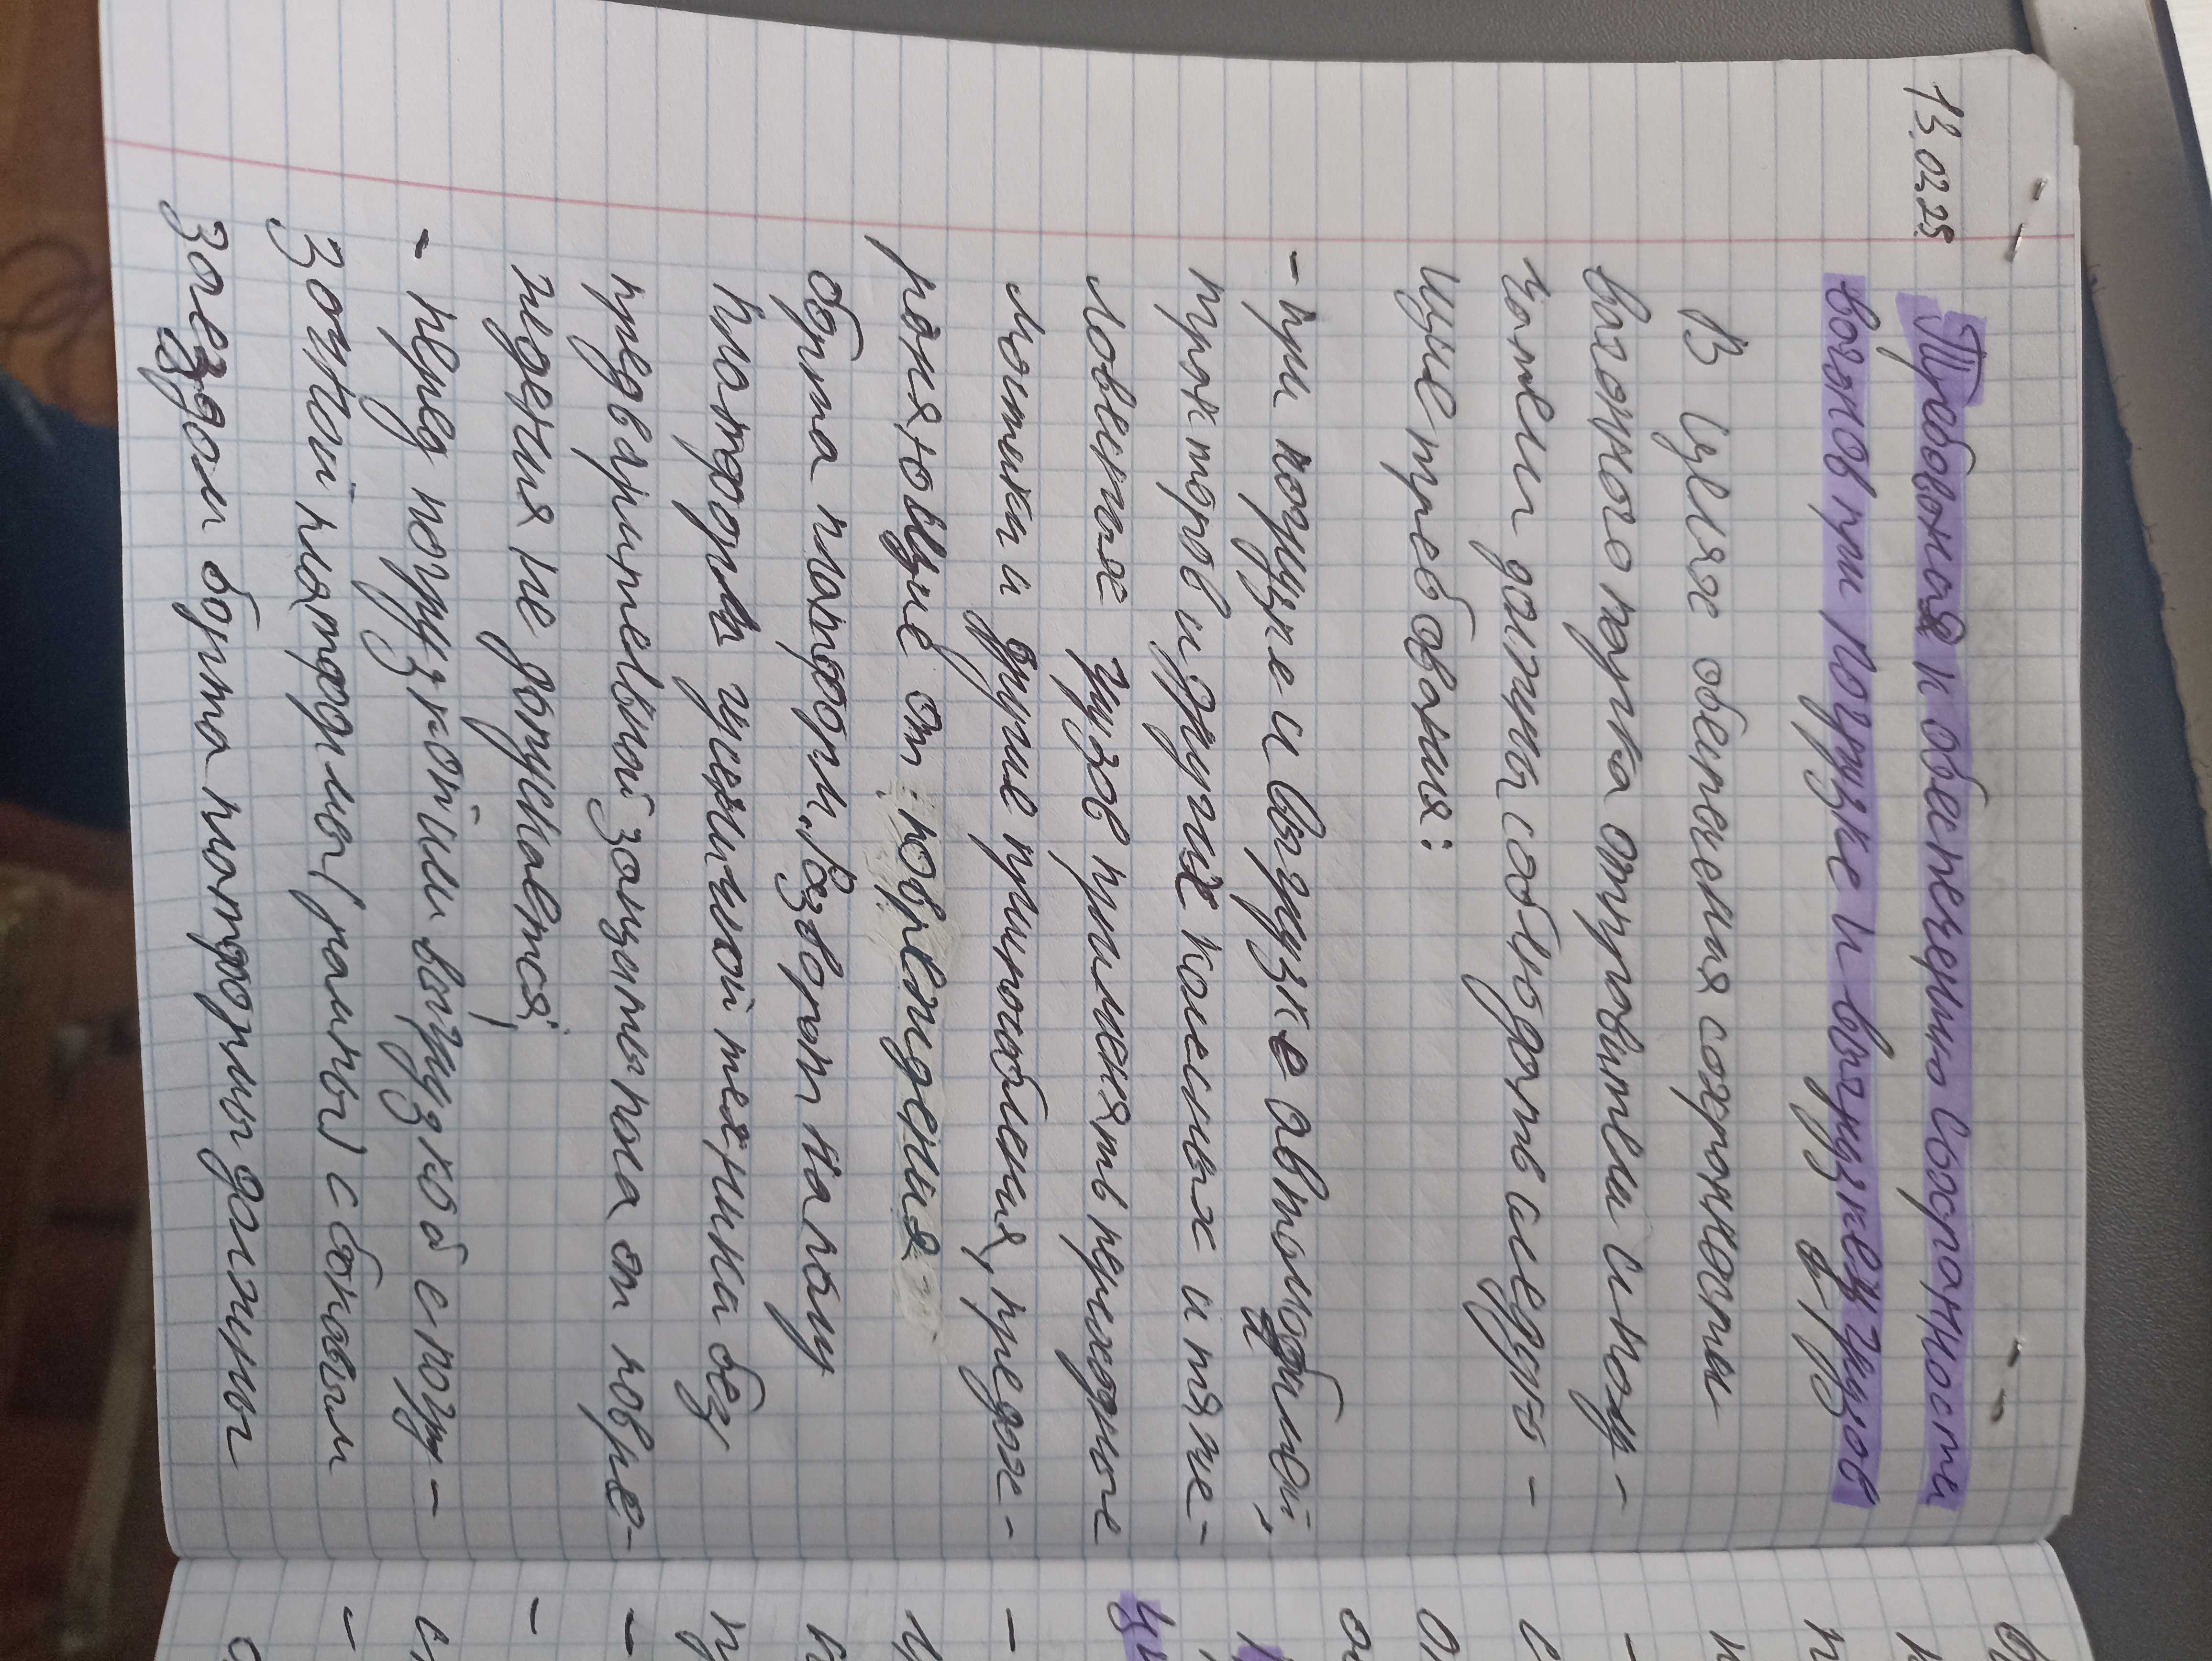 13.02.25
Требования к обеспечению сохранности
вагонов при погрузке и выгрузке грузов
В целях обеспечения сохранности
вагонного парка отправители и полу-
чатели должны соблюдать следую-
щие требования:
- при погрузке и выгрузке автомобилей,
тракторов и других колесных и тяже-
ловесных грузов применять переходные
мостики и другие приспособления, предох-
раняющие от повреждения
борта платформ. Разворот на полу
платформы гусеничной техники без
предварительной защиты пола от повре-
ждения не допускается;
- перед погрузкой или выгрузкой с погру-
зочной платформы (рампы) с боковым
заездом борта платформы должны